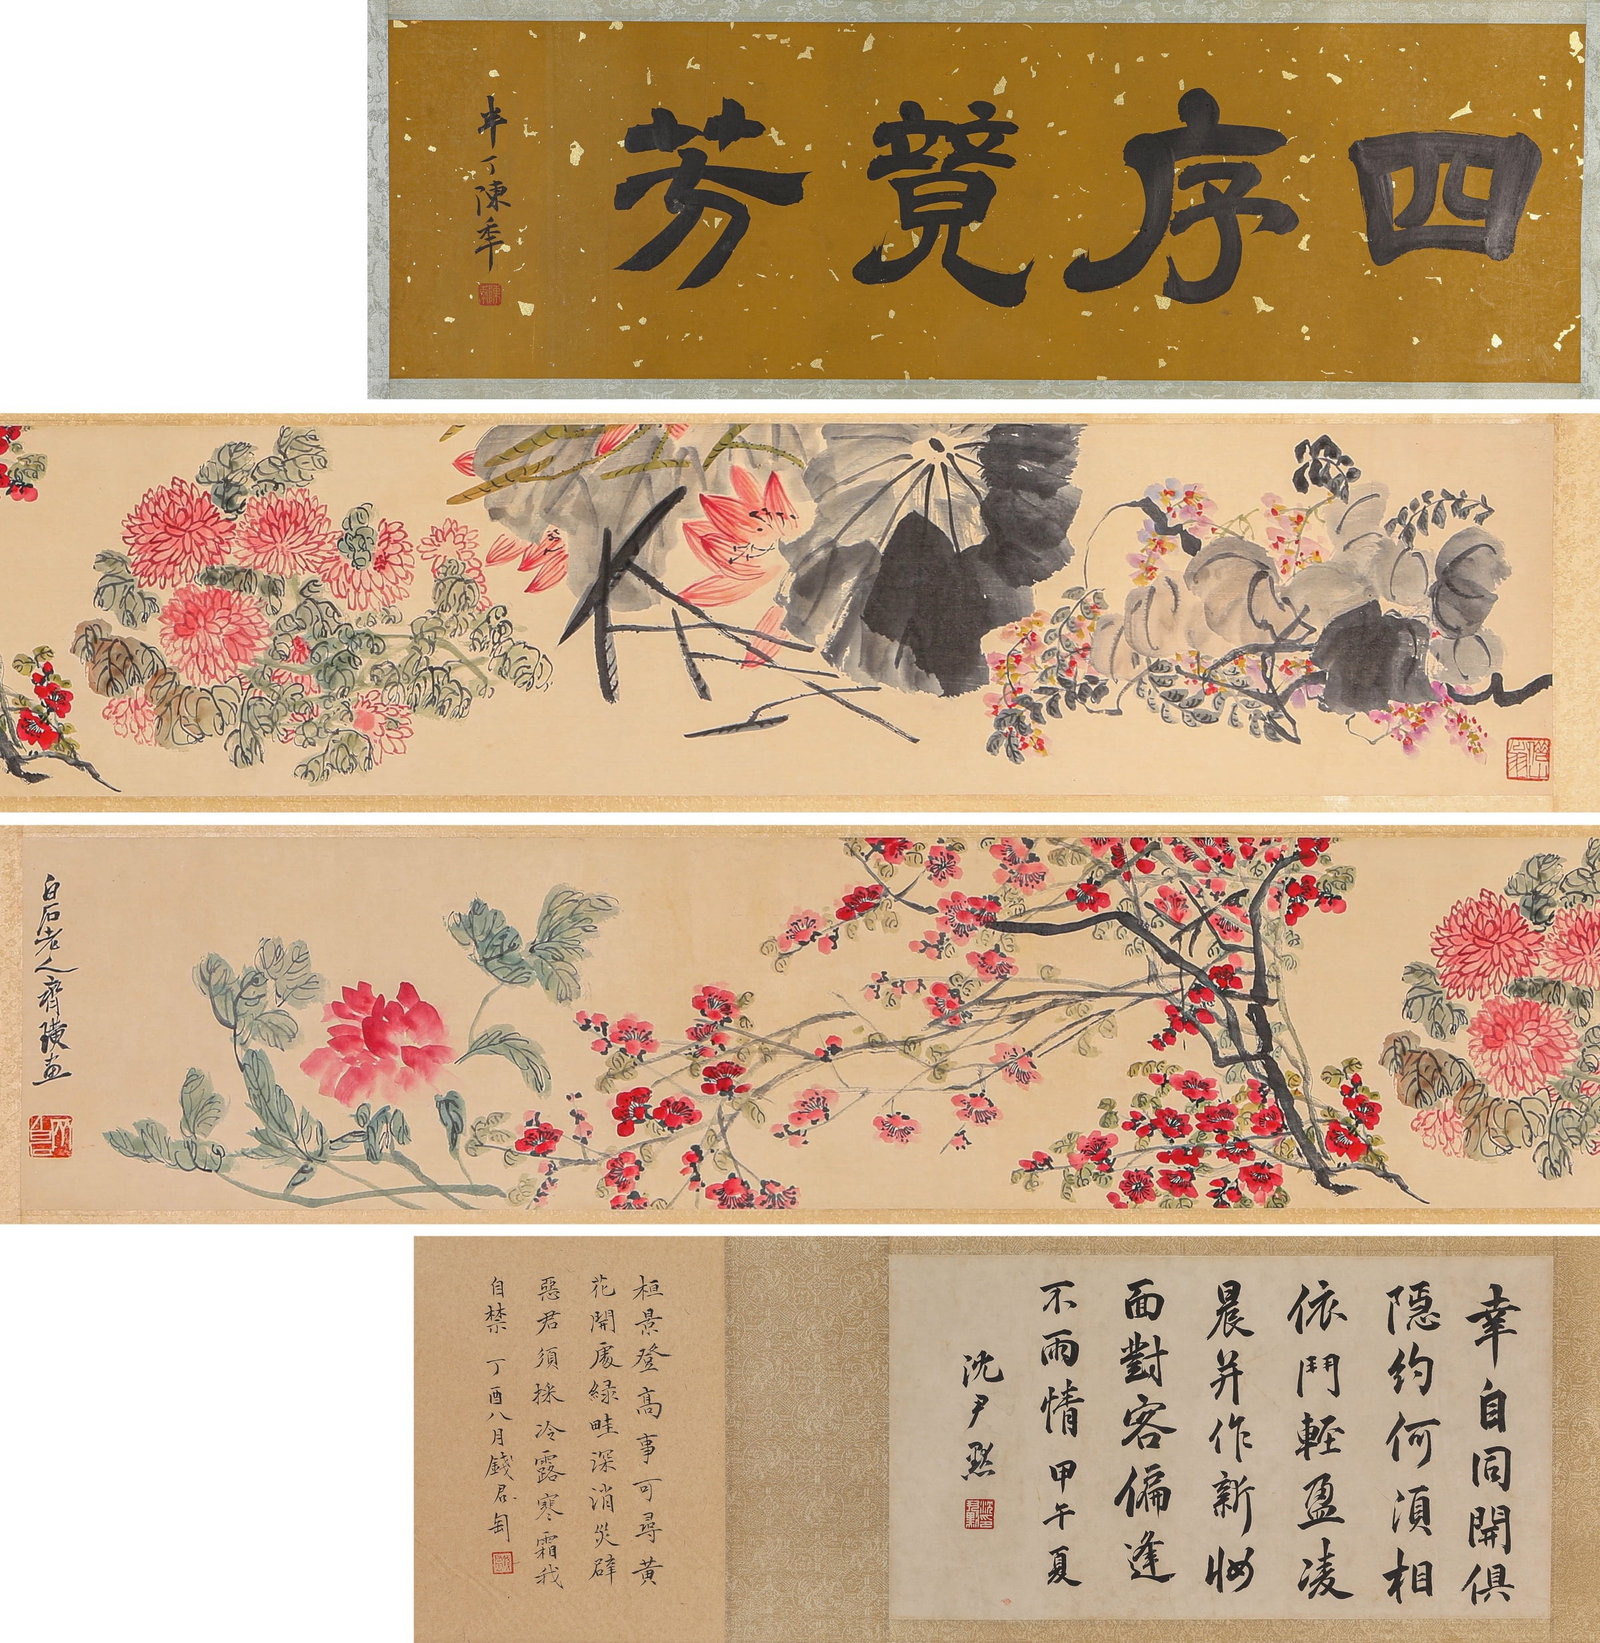 四序競芳
半丁陳年
白石老人齊璜畫
幸自同開俱
隱約何須相
依鬥輕盈凌
晨并作新妝
面對客偏逢
不雨情甲午夏
沈尹默
桓景登高事可尋黄
花開處緑畦深消災辟
惡君須採冷露寒霜我
自禁 丁酉八月錢君匋